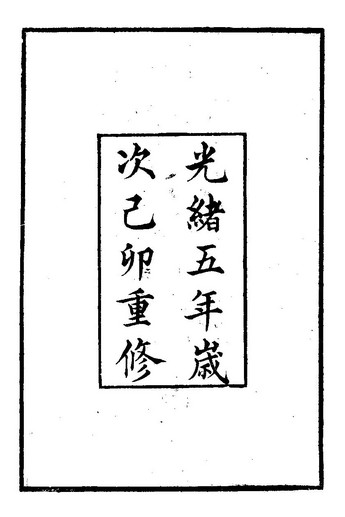 光緒五年歲
次己卯重修